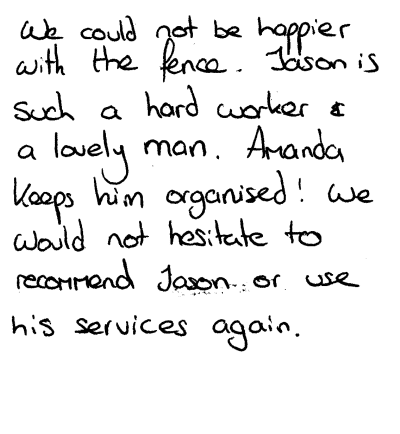 We could not be happier
with the fence. Jason is
such a hard worker &
a lovely man. Amanda
keeps him organised! We
would not hesitate to
recommend Jason or use
his services again.